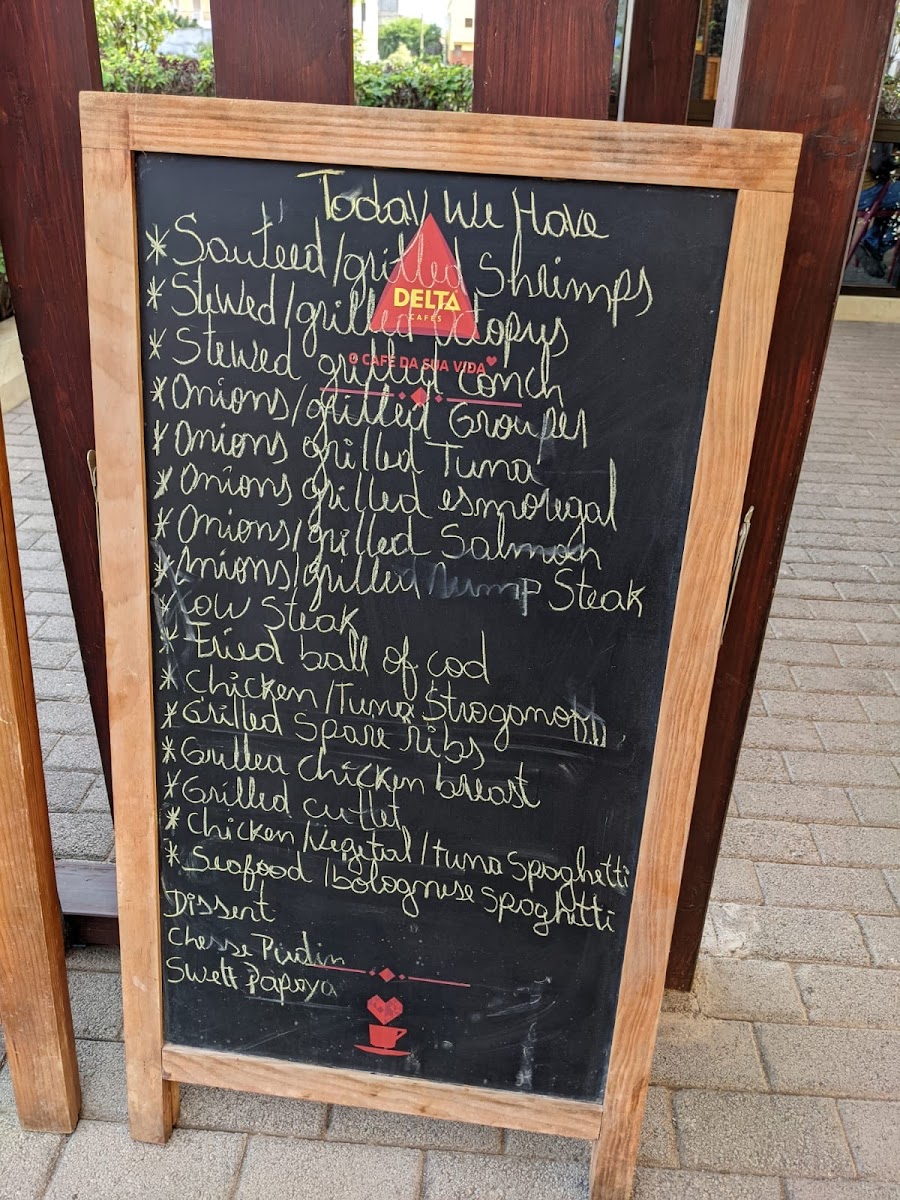 Today We Have
* Sauteed/grilled Shrimps
DELTA
CAFÉS
* Stewed/grilled Octopys
O CAFÉ DA SUA VIDA
* Stewed grilled conch
* Onions/grilled Grouper
* Onions grilled Tuna
* Onions grilled esmoregal
* Onions/grilled Salmon
* Onions/grilled Steak
* Cow Steak
* Fried ball of cod
* Chicken/Tuna Strogonoff
* Grilled Spare ribs
* Grilled chicken breast
* Grilled cutlet
* Chicken/Vegetal/tuna Spaghetti
* Seafood/bolognese spaghetti
Dissert
Chesse Pudin
Swett Papaya